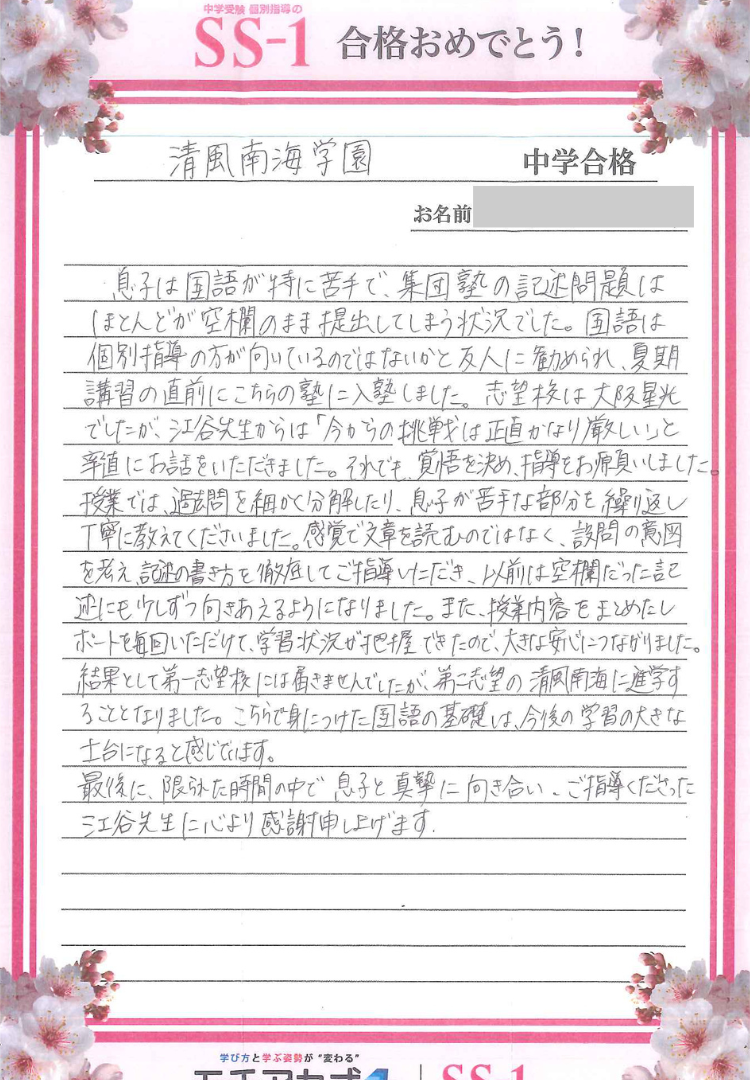 中学受験 個別指導の
SS-1 合格おめでとう!
清風南海学園 中学合格
お名前
息子は国語が特に苦手で、集団塾の記述問題は
ほとんどが空欄のまま提出してしまう状況でした。国語は
個別指導の方が向いているのではないかと友人に勧められ、夏期
講習の直前にこちらの塾に入塾しました。志望校は大阪星光
でしたが、江谷先生からは「今からの挑戦は正直かなり厳しい」と
率直にお話をいただきました。それでも、覚悟を決め、指導をお願いしました。
授業では、過去問を細かく分解したり、息子が苦手な部分を繰り返し
丁寧に教えてくださいました。感覚で文章を読むのではなく、設問の意図
を考え、記述の書き方を徹底してご指導いただき、以前は空欄だった記
述にも少しずつ向きあえるようになりました。また、授業内容をまとめたレ
ポートを毎回いただけて、学習状況が把握できたので、大きな安心につながりました。
結果として第一志望校には届きませんでしたが、第二志望の清風南海に進学す
ることとなりました。こちらで身につけた国語の基礎は、今後の学習の大きな
土台になると感じています。
最後に、限られた時間の中で息子と真摯に向き合い、ご指導くださった
江谷先生に心より感謝申し上げます.
学び方と学ぶ姿勢が"変わる"
SS-1